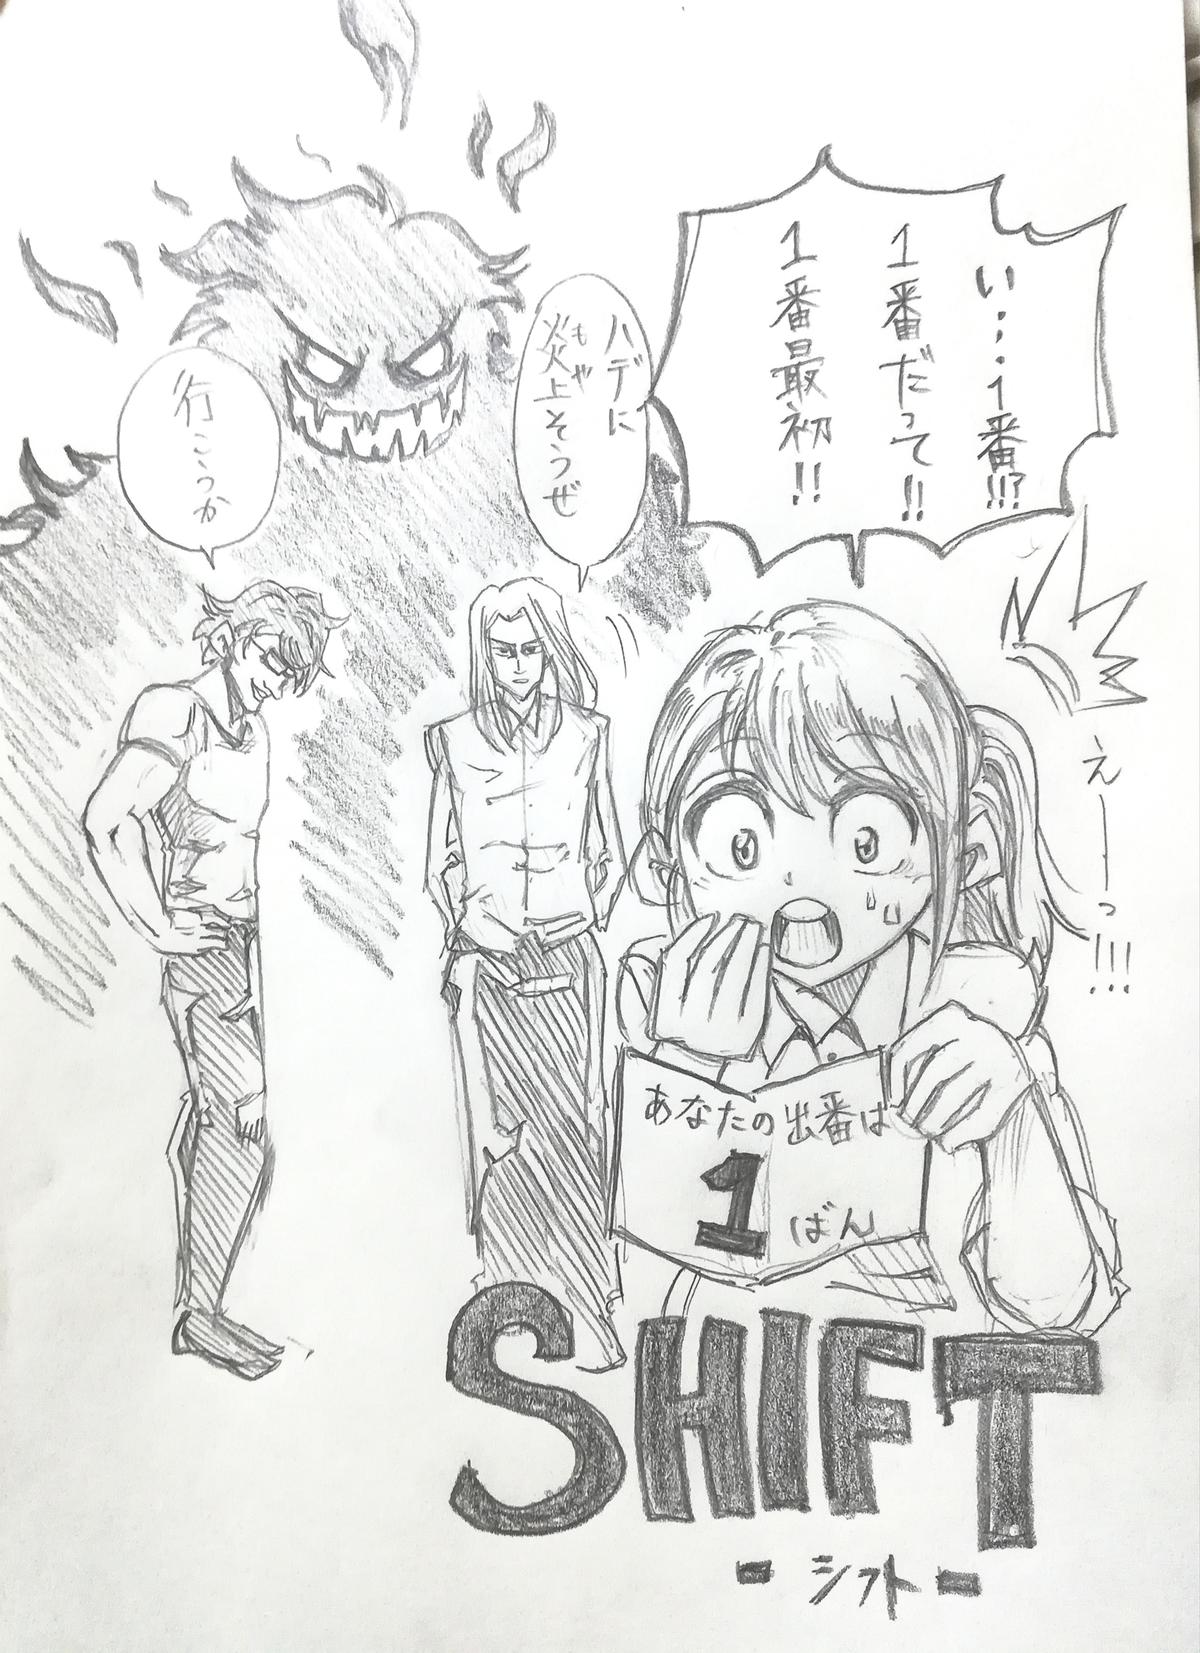 い・・・1番!!?
1番だって!!
1番最初!!
ハデに
もや
炎上そうぜ
行こうか
えーっ!!!
あなたの出番は
1ばん
SHIFT
- シフト -